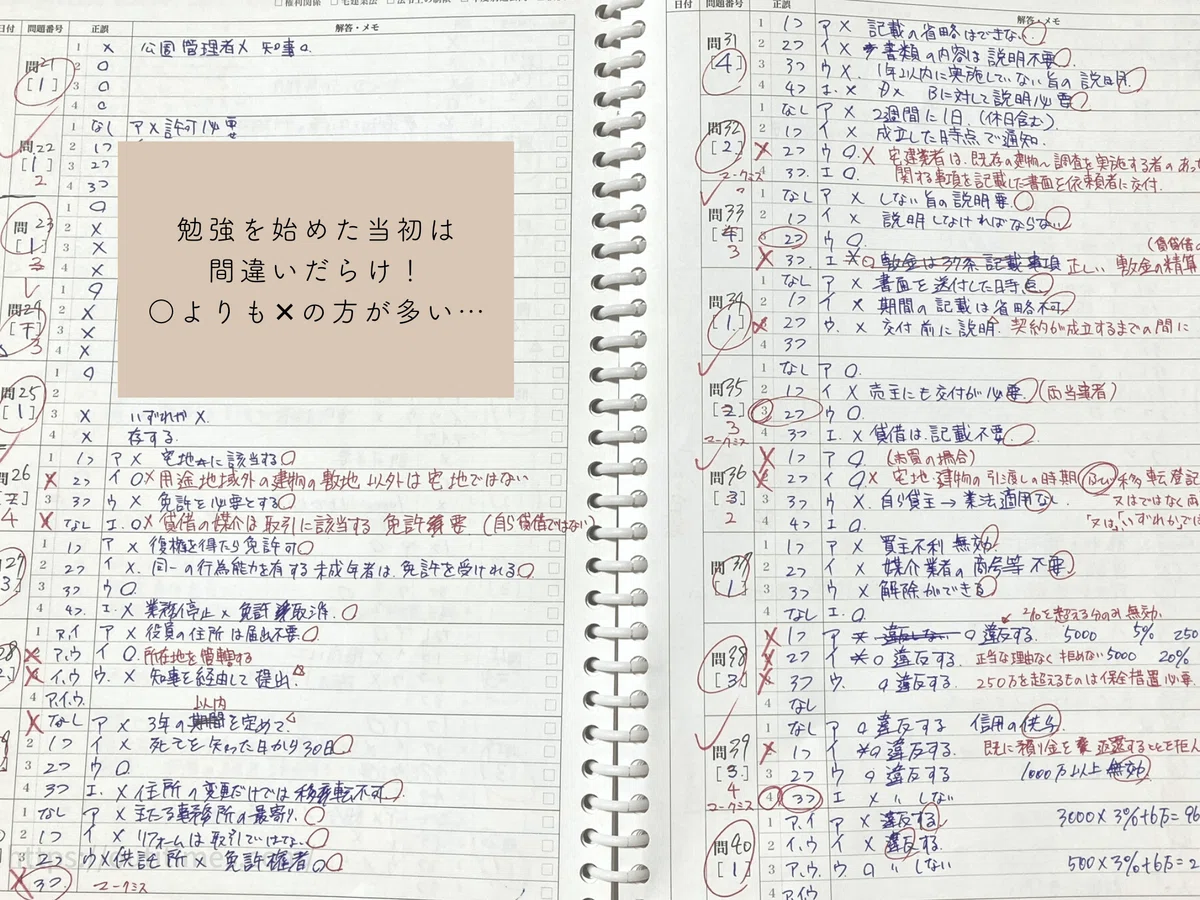 日付 問題番号 正誤 解答・メモ
問21 [1]
1 × 公園管理者× 知事○
2 ○
3 ○
4 ○
問22 [1] 2
1 なし ア × 許可必要
2 1つ
3 2つ
4 3つ
問23 [1]
1 ○
2 ×
3 ×
4 ×
問24
3
1 ○
2 ×
3 ×
4 ×
勉強を始めた当初は
間違いだらけ！
○よりも×の方が多い…
問25 [1]
1 ○
2
3 × いずれや×
4 × 存する
問26
4
1 1つ ア × 宅地に該当する○
2 2つ イ ○× 用途地域外の建物の敷地以外は宅地ではない
3 3つ ウ × 免許を必要とする○
4 なし エ ○× 貸借の媒介は取引に該当する 免許必要 (自ら貸借ではない)
1 1つ ア × 復権を得たら免許可○
2 2つ イ × 同一の行為能力を有する未成年者は、免許を受けれる○
3 3つ ウ ○
4 4つ エ × 業務停止× 免許取消○
1 ア,イ ア × 役員の住所は届出不要○
ア,ウ イ ○ 所在地を管轄する
イ,ウ ウ × 知事を経由して提出
4 ア,イ,ウ
以内
なし ア × 3年の期間を定めて
2 1つ イ × 死亡を知った日から30日○
3 2つ ウ ○
4 3つ エ × 住所の変更だけでは移転不可○
1 なし ア × 主たる事務所の最寄り○
2 1つ イ × リフォームは取引ではない○
3 2つ ウ × 供託所× 免許権者○
3つ マークミス
日付 問題番号 正誤 解答・メモ
問31 [4]
1 1つ ア × 記載の省略はできない○
2 2つ イ × 書類の内容は説明不要○
3 3つ ウ × 1年以内に実施していない旨の説明
4 4つ エ × A× Bに対して説明必要
問32 [2] マークミス
1 なし ア × 2週間に1日(休日含む)
2 1つ イ × 成立した時点で通知
× 2つ ウ ○× 宅建業者は、既存の建物 調査を実施する者のあっ
4 3つ エ ○ 関する事項を記載した書面を依頼者に交付
問33 3
1 なし ア × しない旨の説明要○
2 1つ イ × 説明しなければならない
2つ ウ ○
× 3つ エ ×○ 敷金は37条記載事項 正しい 敷金の精算
問34 [1]
1 なし ア × 書面を送付した時点
2 1つ イ × 期間の記載は省略不可
× 2つ ウ × 交付前に説明 契約が成立するまでの間に
4 3つ
問35 [2] 3 マークミス
1 なし ア ○
2 1つ イ × 売主にも交付が必要○ (両当事者)
3 2つ ウ ○
4 3つ エ × 貸借は、記載不要○
問36 [3] 2
1つ ア ○ (売買の場合)
2つ イ ○× 宅地・建物の引渡しの時期 及び 移転登記
3 3つ ウ × 自ら貸主→業法適用なし 又はではなく両
4 4つ エ ○ 「又は」「いずれかで
[1]
1 1つ ア × 買主不利 無効
2 2つ イ × 媒介業者の商号等 不要○
3 3つ ウ × 解除ができる○
4 なし エ ○ 2/10を超える分のみ無効
問38 [3]
× 1つ ア × 違反しない ○ 違反する 5000 5% 250
× 2つ イ ×○ 違反する 正当な理由なく拒めない 5000 20%
× 3つ ウ ○ 違反する 250万を超えるものは保全措置必要
4 なし
問39 [3] 4 マークミス
1 なし ア ○ 違反する 信用の供与
× 1つ イ ×○ 違反する 既に預り金を返還することを拒
3 2つ ウ ○ 違反する 1000万以上無効
4 3つ エ × 〃 しない
問40 [1]
1 ア,イ ア × 違反する 3000×3%+6万=96
2 イ,ウ イ 違反する
3 ア,ウ ウ ○ 〃 しない 500×3%+6万=2
4 ア,イ,ウ